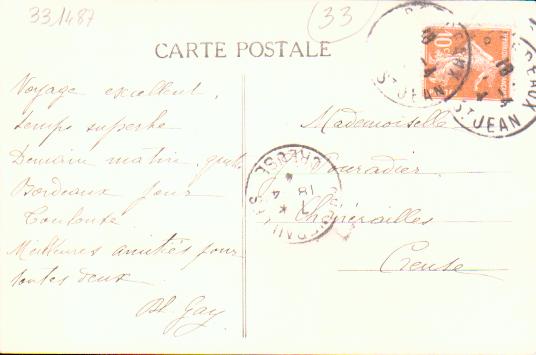 33.1487
33
CARTE POSTALE
10
Voyage excellent,
temps superbe
Demain matin, quitte
Bordeaux pour
Toulouse
Meilleures amitiés pour
toutes deux
Bl. Gay
Mademoiselle
Couradier
Chénérailles
Creuse
BORDEAUX
ST JEAN
BORDEAUX
ST JEAN
CREUSE
18
4